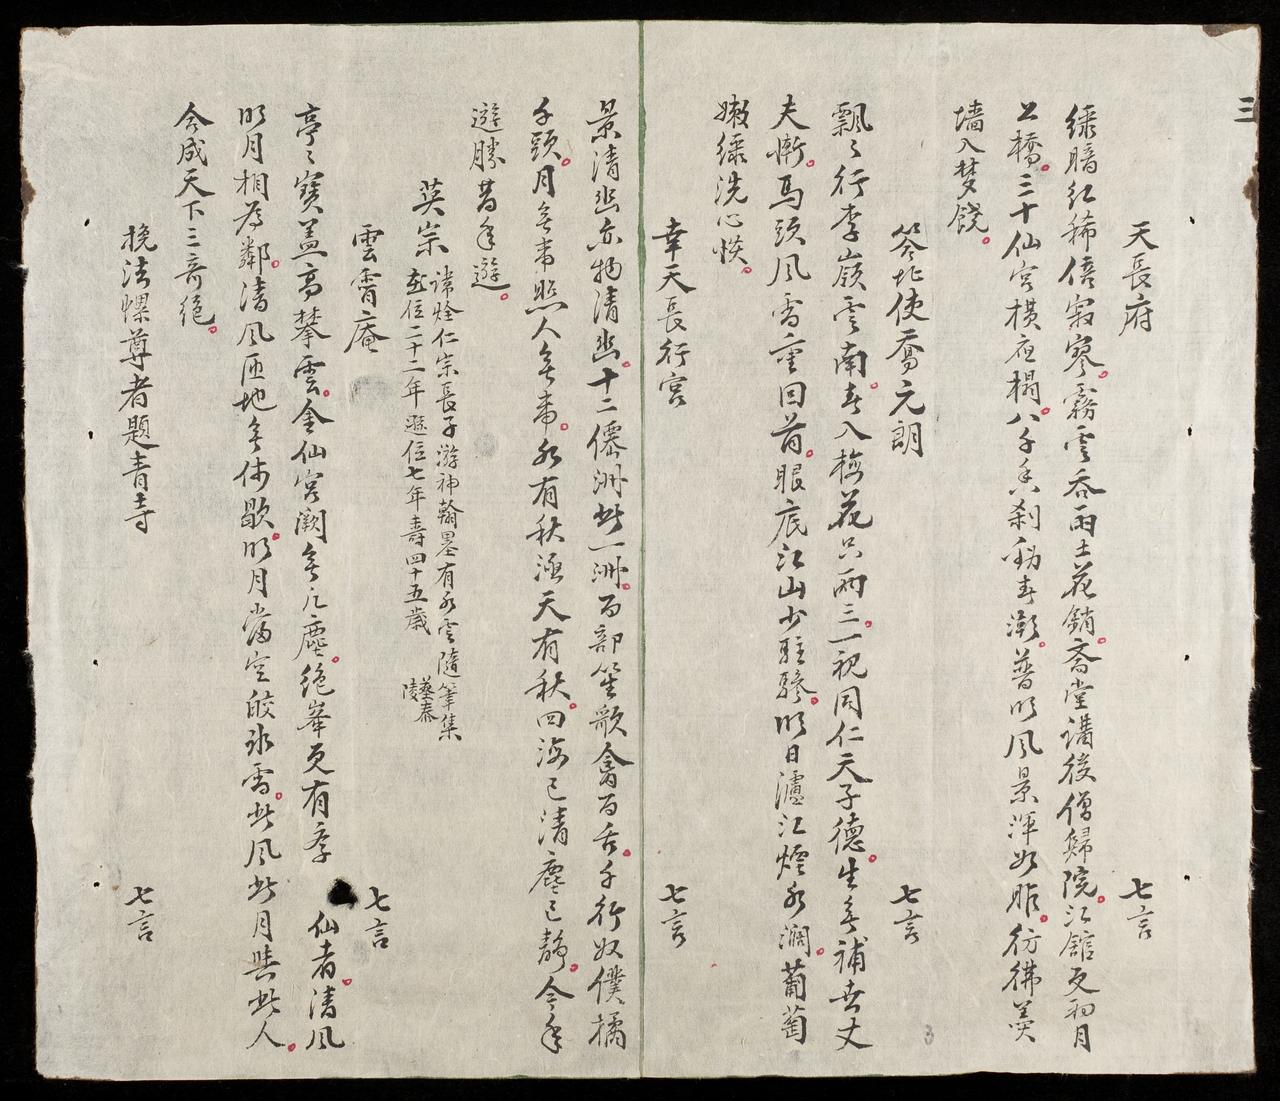 三
天長府 七言
綠暗紅稀倍寂寥霧雲吞雨土花銷斎堂講後僧歸院江舘更初月
上橋三十仙宮橫夜榻八千香刹動春潮普明風景渾如昨彷彿羹
墻入梦饒
答北使喬元朗 七言
飄〻行李嶺雲南春入梅花只兩三一視同仁天子德生無補世丈
夫慚馬頭風雪重回首眼底江山少駐驂明日瀘江煙水濶葡萄
嫩綠洗心惔
幸天長行宮 七言
景清幽亦物清幽十二僊洲此一洲百部笙歌禽百舌千行奴僕橘
千頭月無事照人無事水有秋涵天有秋四海已清塵已靜今年
遊勝昔年遊
英宗 諱烇仁宗長子游神翰墨有水雲隨筆集
在位二十二年遜位七年壽四十五歲 葬泰陵
雲霄庵 七言
亭〻寶盖高攀雲金仙宮闕無凡塵絶峯更有 仙者清風
明月相為鄰清風匝地無休歇明月當空皎氷雪此風此月與此人
合成天下三奇絕
挽法螺尊者題青寺 七言